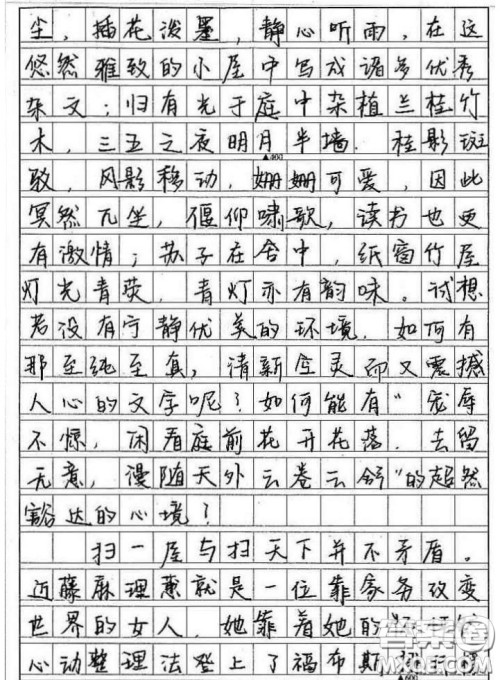 尘，插花泼墨，静心听雨，在这
悠然雅致的小屋中写成诸多优秀
杂文；归有光于庭中杂植兰桂竹
木，三五之夜明月半墙，桂影斑
▲400
驳，风影移动，姗姗可爱，因此
冥然兀坐，偃仰啸歌，读书也更
有激情；苏子在舍中，纸窗竹屋
灯光青荧，青灯亦有韵味。试想
若没有宁静优美的环境，如何有
那至纯至真，清新空灵而又震撼
人心的文字呢？如何能有“宠辱
不惊，闲看庭前花开花落，去留
无意，漫随天外云卷云舒”的超然
豁达的心境？
扫一屋与扫天下并不矛盾。
近藤麻理惠就是一位靠家务改变
世界的女人，她靠着她的
心动整理法登上了福布斯
答案圈
MXQE.COM
▲600